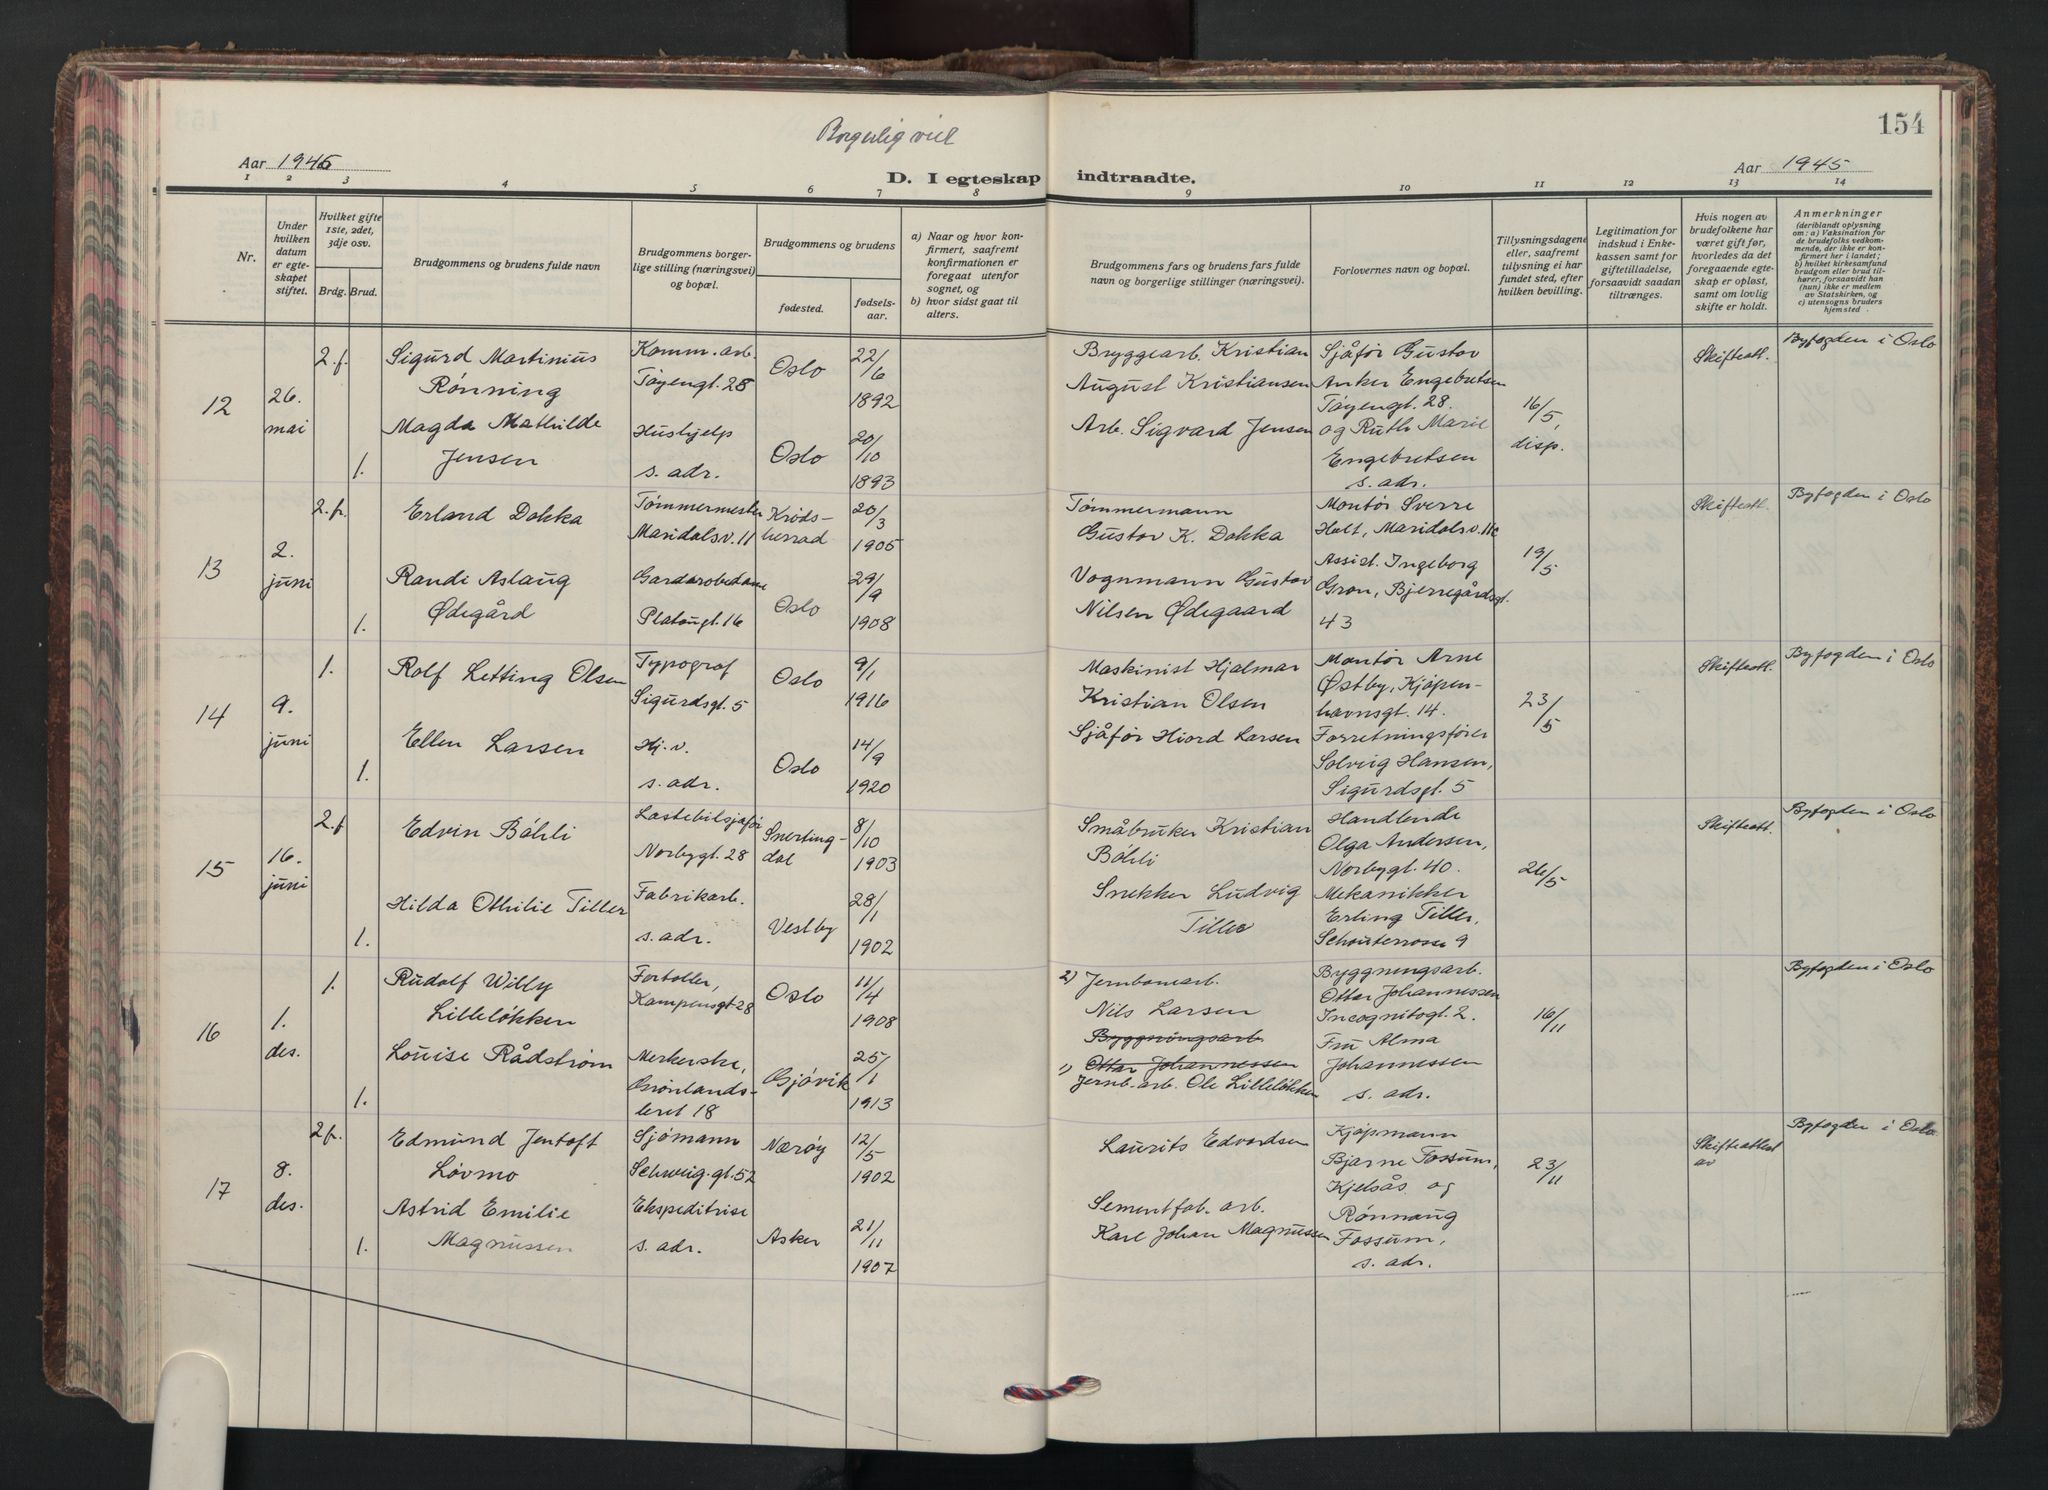 154
Borgerlig viet
Aar 1945
Aar 1945
D. I egteskap indtraadte.
1 2 3 4 5 6 7 8 9 10 11 12 13 14
Nr.
Under hvilken datum er egteskapet stiftet.
Hvilket gifte 1ste, 2det, 3dje osv.
Brdg. Brud.
Brudgommens og brudens fulde navn
Brudgommens borgerlige stilling (næringsvei) og bopæl.
Brudgommens og brudens
fødested.
fødselsaar.
a) Naar og hvor konfirmert, saafremt konfirmationen er foregaat utenfor sognet, og
b) hvor sidst gaat til alters.
Brudgommens fars og brudens fars fulde navn og borgerlige stillinger (næringsvei).
Forlovernes navn og bopæl.
Tillysningsdagene eller, saafremt tillysning ei har fundet sted, efter hvilken bevilling.
Legitimation for indskud i Enkekassen samt for giftetilladelse, forsaavidt saadan tiltrænges.
Hvis nogen av brudefolkene har været gift før, hvorledes da det foregaaende egteskap er opløst, samt om lovlig skifte er holdt.
Anmerkninger (deriblandt oplysning om: a) Vaksination for de brudefolks vedkommende, der ikke er konfirmert her i landet; b) hvilket kirkesamfund brudgom eller brud tilhører, forsaavidt han (hun) ikke er medlem av Statskirken, og c) utensogns bruders hjemsted
12
26. mai
2. f.
Sigurd Martinius Rønning
Komm. arb. Tøyengt. 28
Oslo
22/6 1892
1.
Magda Mathilde Jensen
Hushjelp s. adr.
Oslo
20/10 1893
Bryggearb. Kristian August Kristiansen
Arb. Sigvard Jensen
Sjåfør Gustav Anker Engebretsen Tøyengt. 28. og Ruth Marie Engebretsen s. adr.
16/5, disp.
Skifteatt.
Byfogden i Oslo
13
2. juni
2. fr.
Erland Dokka
Tømmermester Maridalsv. 11
Krødsherrad
20/3 1905
1.
Randi Aslaug Ødegård
Garderobedame Platougt. 16
Oslo
29/9 1908
Tømmermann Gustav K. Dokka
Vognmann Gustav Nilsen Ødegaard
Montør Sverre Holt, Maridalsv. 11c
Assist. Ingeborg Gron, Bjerregårdsgt. 43
19/5
Skifteatt.
Byfogden i Oslo
14
9. juni
1.
Rolf Letting Olsen
Typograf Sigurdsgt. 5
Oslo
9/1 1916
1.
Ellen Larsen
Hj. v. s. adr.
Oslo
14/9 1920
Maskinist Hjalmar Kristian Olsen
Sjåfør Hiord Larsen
Montør Arne Østby, Kjøpenhavnsgt. 14.
Forretningsfører Solveig Hansen, Sigurdsgt. 5
23/5
Skifteatt.
Byfogden i Oslo
15
16. juni
2. f
Edvin Bøhli
Lastebilsjåfør Norbygt. 28
Snertingdal
8/10 1903
1.
Hilda Othilie Tiller
Fabrikarb. s. adr.
Vestby
28/1 1902
Småbruker Kristian Bøhli
Snekker Ludvig Tiller
Handlende Olga Andersen, Norbygt. 40.
Mekanikker Erling Tiller,
9
26/5
Skifteatt.
Byfogden i Oslo
16
1. des.
1.
Rudolf Willy Lilleløkken
Fortoller, Kampensgt. 28
Oslo
11/4 1908
1.
Louise Rådstrøm
Merkerske, Grønlandsleret 18
Gjøvik
25/1 1913
2) Jernbanearb. Nils Larsen
Byggningsarb
1) Ottar Johannessen
Jernb. arb. Ole Lilleløkken
Byggningsarb. Ottar Johannessen Incognitogt. 2.
Fru Alma Johannessen s. adr.
16/11
Byfogden i Oslo
17
8. des.
2 fr.
Edmund Jentoft Løvmo
Sjømann Schweig. gt. 52
Nærøy
12/5 1902
1.
Astrid Emilie Magnussen
Ekspeditrise s. adr.
Asker
21/11 1907
Laurits Edvardsen
Sementfab. arb. Karl Johan Magnussen
Kjøpmann Bjarne Fossum, Kjelsås og Rønnaug Fossum, s. adr.
23/11
Skifteattest av
Byfogden i Oslo